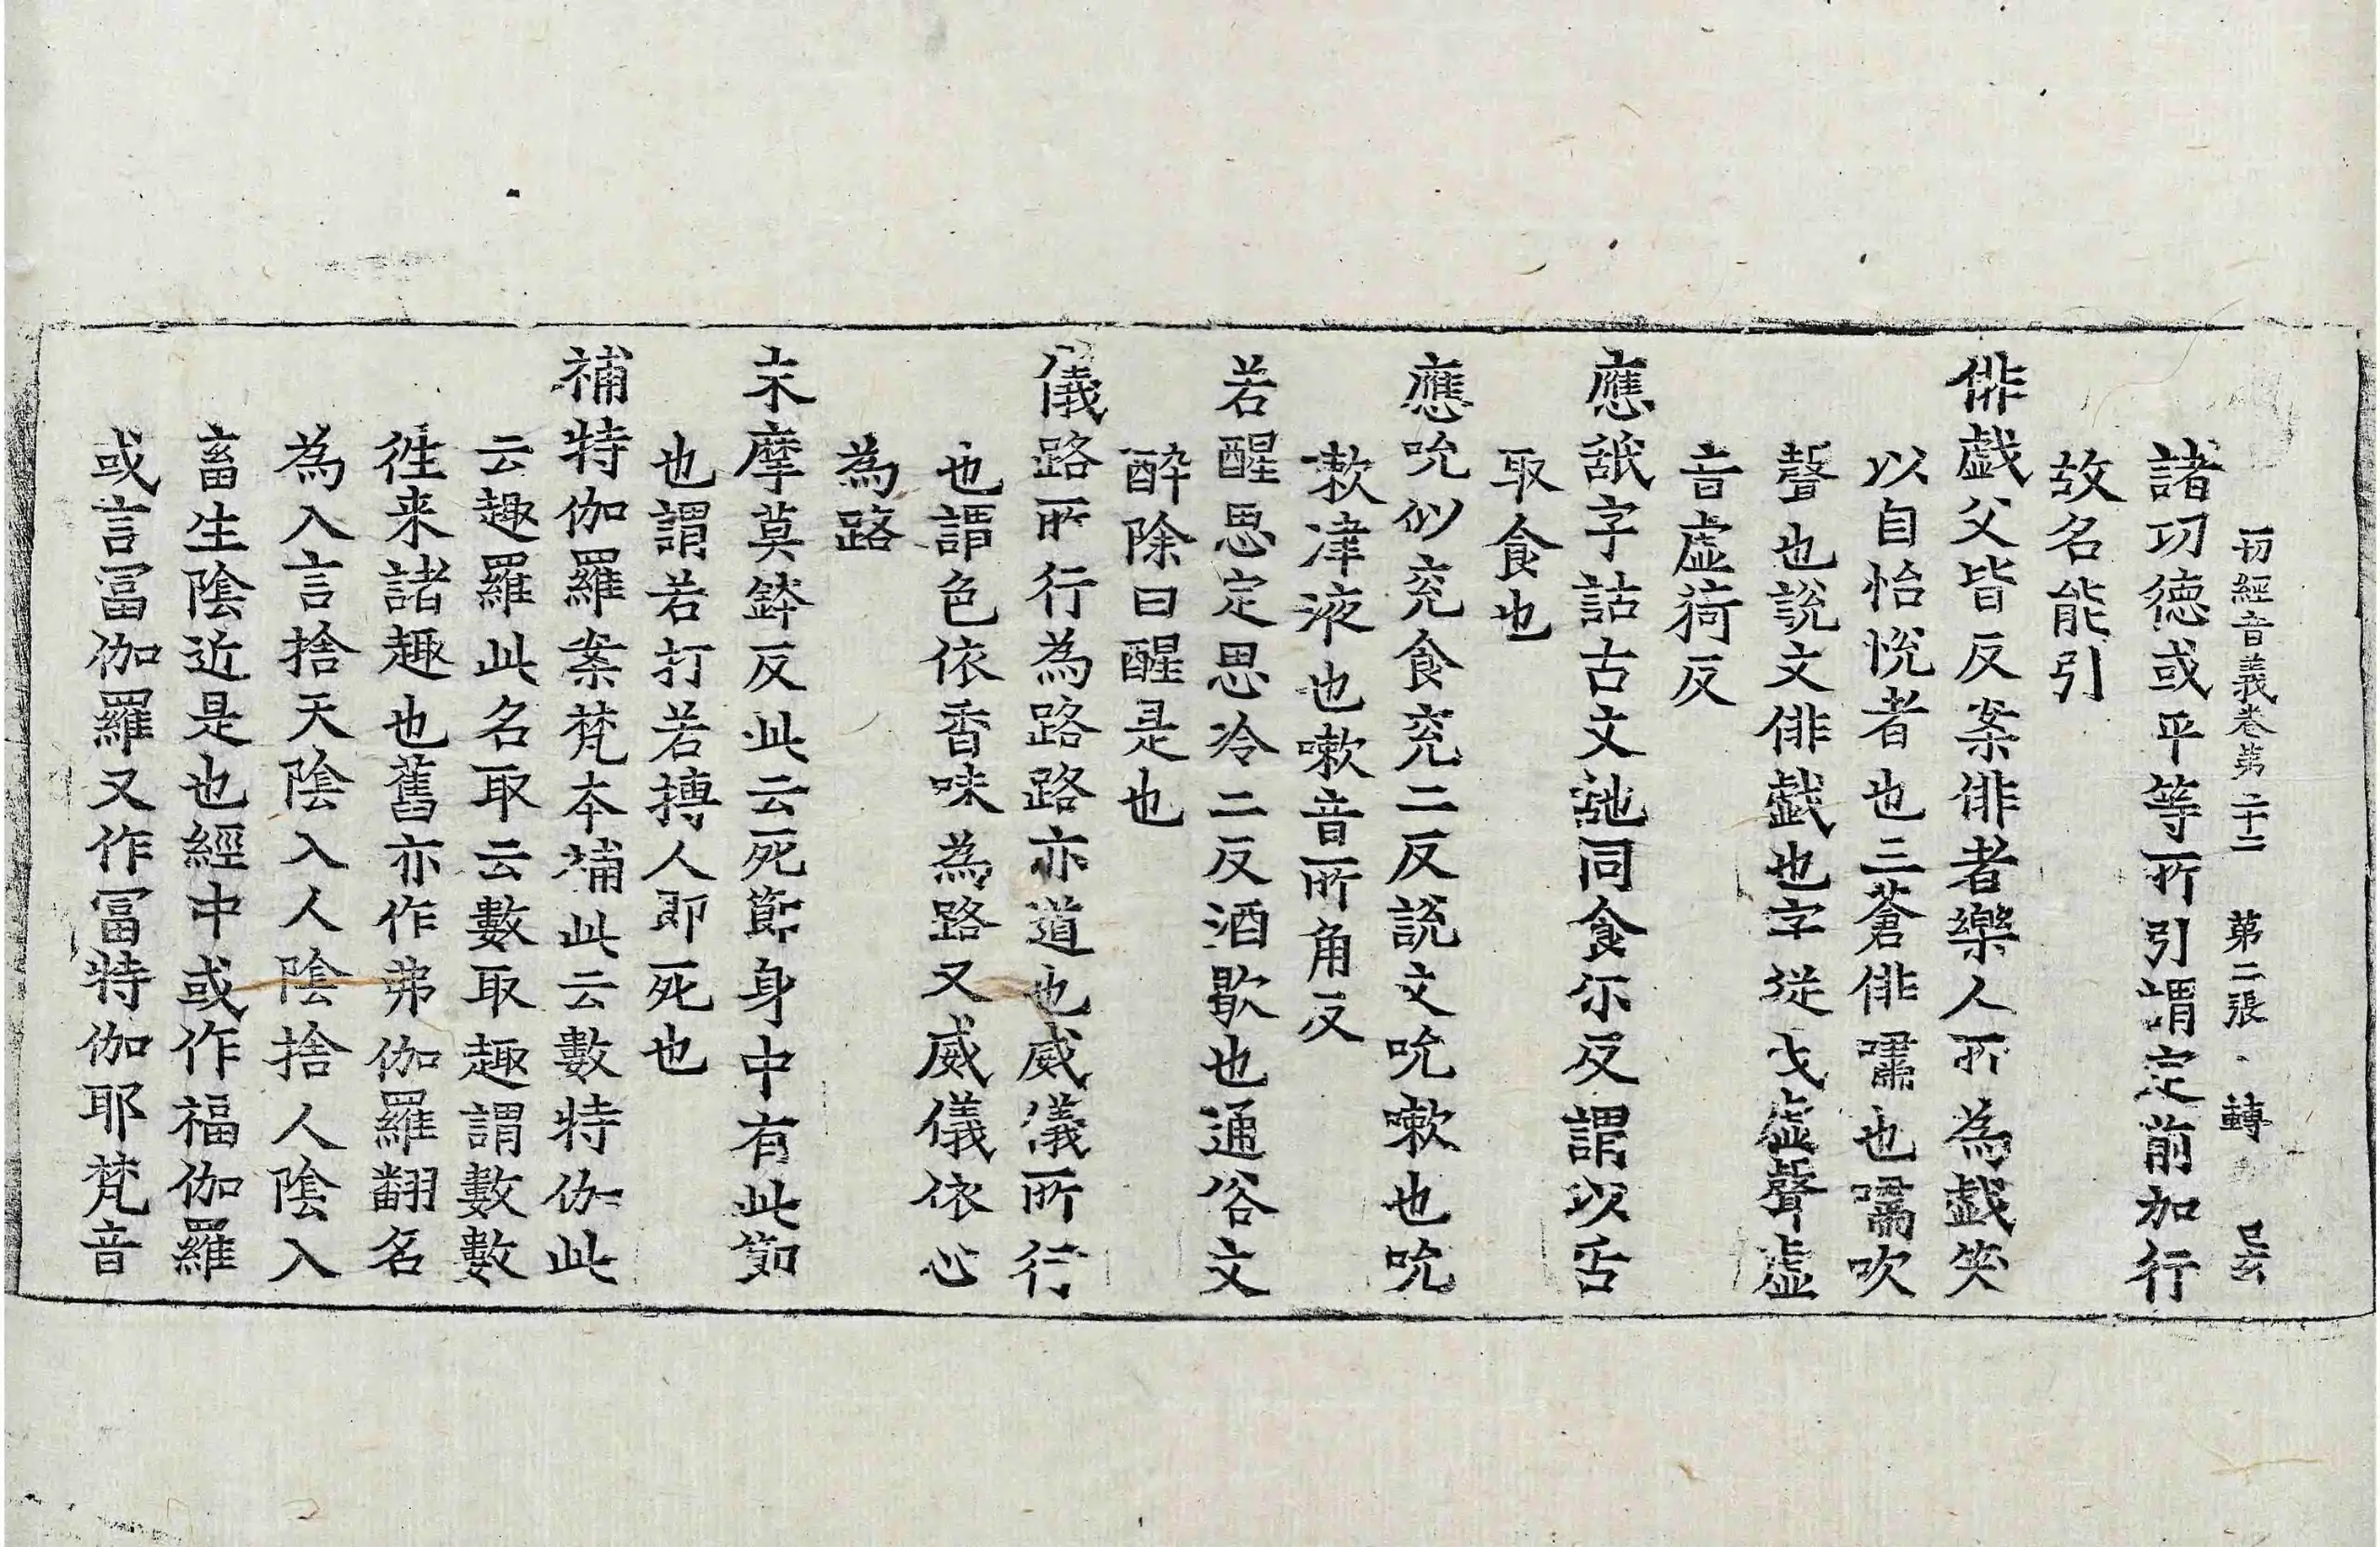 一切經音義卷第二十二　第二張　轉
諸功德或平等所引謂定前加行
故名能引
俳戯父皆反案俳者樂人所為戯笑
以自怡悅者也三蒼俳嘯也嘯吹
聲也說文俳戯也字從戈虛聲虛
音虛猗反
應䑛字詁古文𦧇同食尓反謂以舌
取食也
應吮似兖食兖二反說文吮嗽也吮
欶津液也嗽音所角反
若醒思定思冷二反酒歇也通俗文
醉除曰醒是也
儀路所行為路路亦道也威儀所行
也謂色依香味為路又威儀依心
為路
末摩莫鉢反此云死節身中有此節
也謂若打若搏人即死也
補特伽羅案梵本補此云數特伽此
云趣羅此名取云數取趣謂數數
徃来諸趣也舊亦作弗伽羅翻名
為入言捨天陰入人陰捨人陰入
畜生陰近是也經中或作福伽羅
或言冨伽羅又作冨特伽耶梵音